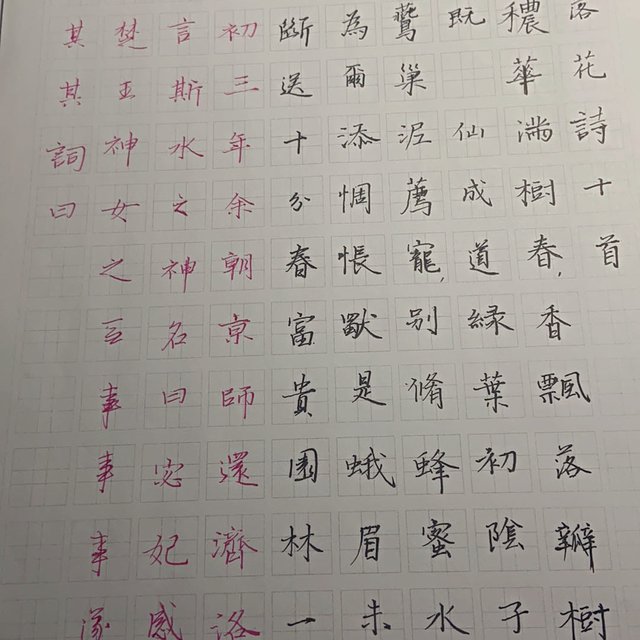 落花詩十首
穠華滿樹春,香飄落瓣樹
既仙成道緑葉初陰子
鶯巢泥薦寵,别脩蜂蜜水
為爾添惆悵獸是蛾眉未
斷送十分春富貴園林一
初三年余朝京師還濟洛
言斯水之神名曰宓妃感
楚王神女之事事事遂
其其詞曰